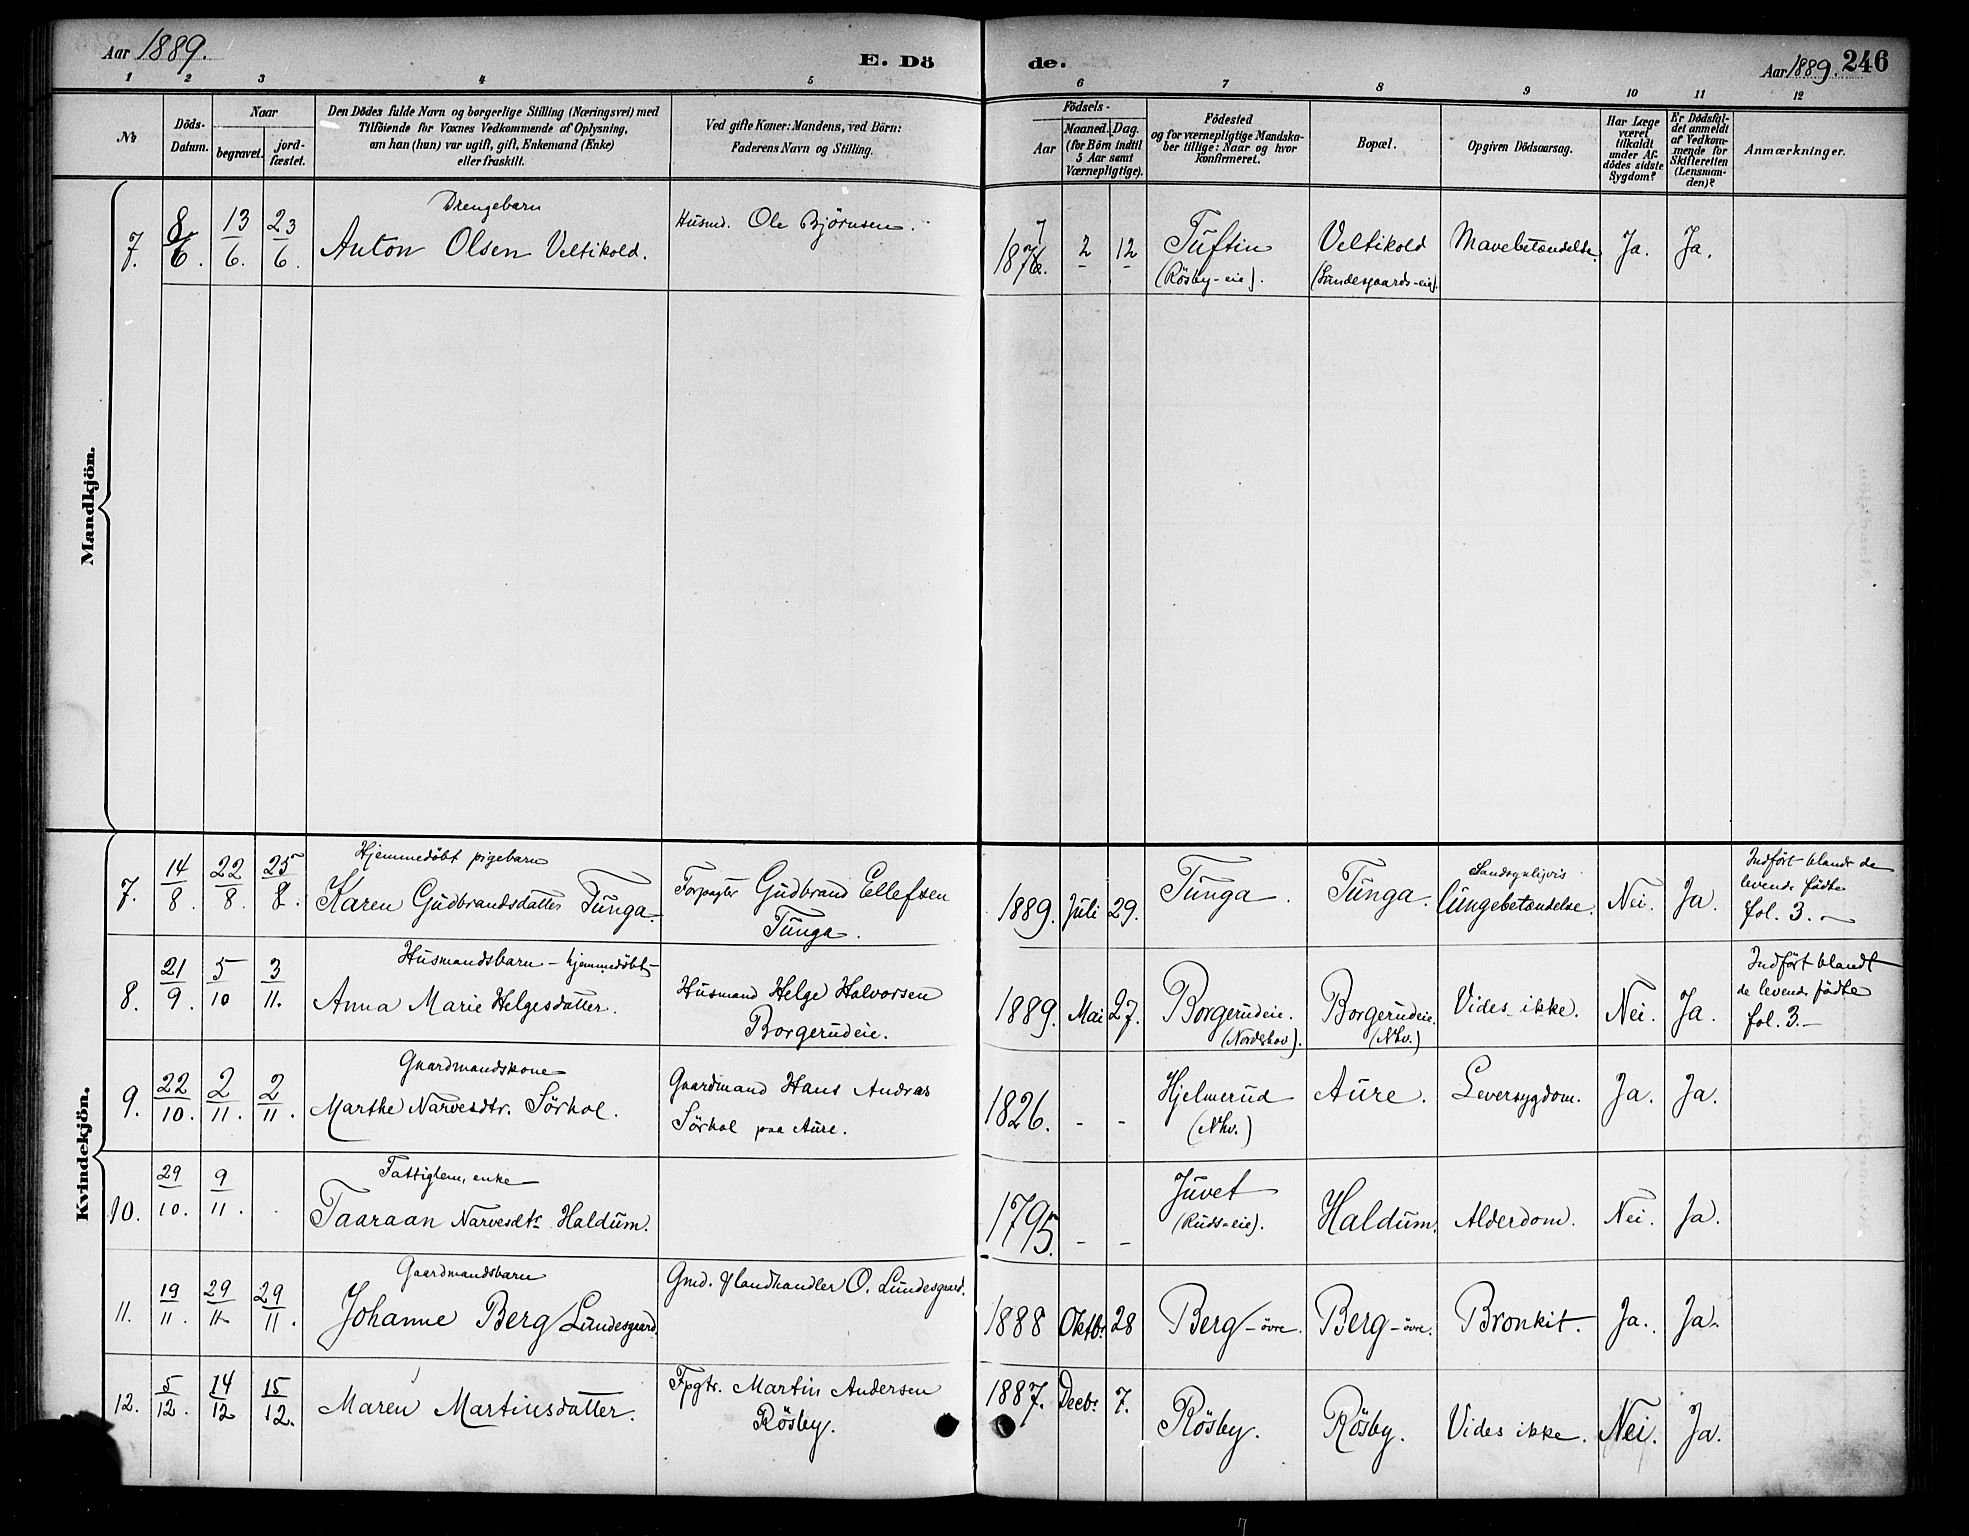 Aar 1889.
E. Dö
de.
Aar 1889. 246
1 2 3 4 5
6 7 8 9 10 11 12
№
Döds-
Datum.
Naar
begravet.
jord-
fæstet.
Den Dödes fulde Navn og borgerlige Stilling (Næringsvei) med
Tilföiende for Voxnes Vedkommende af Oplysning,
om han (hun) var ugift, gift, Enkemand (Enke)
eller fraskilt.
Ved gifte Koner: Mandens, ved Börn:
Faderens Navn og Stilling.
Födsels-
Aar
Maaned. Dag.
(for Börn indtil
5 Aar samt
Værnepligtige).
Födested
og for værnepligtige Mandska-
ber tillige: Naar og hvor
konfirmeret.
Bopæl.
Opgiven Dödsaarsag.
Har Læge
været
tilkaldt
under Af-
dödes sidste
Sygdom?
Er Dödsfal-
det anmeldt
af Vedkom-
mende for
Skifteretten
(Lensman-
den)?
Anmærkninger.
Mandkjön.
7. 8/6. 13/6. 23/6.
Drengebarn
Anton Olsen Veltikold.
Husmd. Ole Björnsen.
7
1876. 2 12
Tuftin
(Rösby-eie).
Veltikold
(Lundesgaards-eie).
Mavebetændelse. Ja. Ja.
Kvindekjön.
7. 14/8. 22/8. 25/8.
Hjemmedöbt pigebarn
Karen Gudbrandsdatter Tunga.
Forpagter Gudbrand Ellefsen
Tunga.
1889. Juli 29. Tunga. Tunga.
Sandsynligvis
lungebetændelse. Nei. Ja.
Indfört blandt de
levende födte
fol. 3.
8. 21/9. 5/10 3/11.
Husmandsbarn - hjemmedöbt
Anna Marie Helgesdatter.
Husmand Helge Halvorsen
Borgerudeie.
1889. Mai 27.
Borgerudeie.
(Norderhov).
Borgerudeie.
(Nhv.)
Vides ikke. Nei. Ja.
Indfört blandt
de levende födte
fol. 3.
9. 22/10. 2/11. 2/11.
Gaardmandskone
Marthe Narvesdtr. Sörhol.
Gaardmand Hans Andreas
Sörhol paa Aure.
1826. - -
Hjelmerud
(Nhv.)
Aure. Leversygdom. Ja. Ja.
10. 29/10. 9/11.
Fattiglem, enke
Taaraan Narvesdtr Haldum.
1795. - -
Juvet
(Ruds-eie).
Haldum. Alderdom. Nei. Ja.
11. 19/11. 29/11 29/11.
Gaardmandsbarn
Johanne Berg/Lundesgaard.
Gmd. & Landhandler O. Lundesgaard.
1888 Oktbr 28 Berg-övre. Berg-övre. Bronkit. Ja. Ja.
12. 5/12. 14/12 15/12.
Maren Martinsdatter.
Fpgtr. Martin Andersen
Rösby.
1887. Decbr 7. Rösby. Rösby. Vides ikke. Nei. Ja.